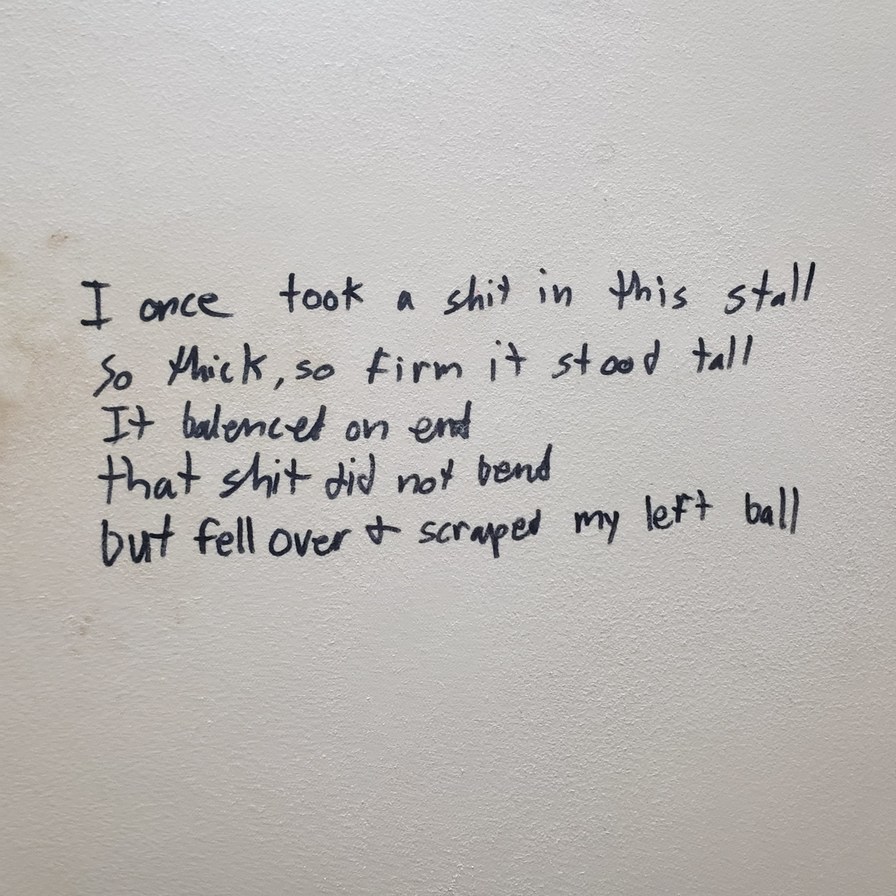 I once took a shit in this stall
So thick, so firm it stood tall
It balenced on end
that shit did not bend
but fell over & scraped my left ball